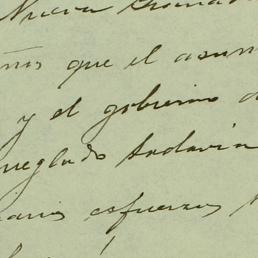 Nueva Granada
que el asun
y el gobierno
reglado todavia
esfuerzos